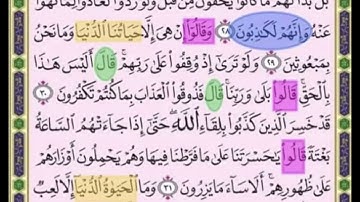 بَلْ بَدَا لَهُم مَّا كَانُوا۟ يُخْفُونَ مِن قَبْلُ وَلَوْ رُدُّوا۟ لَعَادُوا۟ لِمَا نُهُوا۟
عَنْهُ وَإِنَّهُمْ لَكَـٰذِبُونَ ٢٨ وَقَالُوٓا۟ إِنْ هِىَ إِلَّا حَيَاتُنَا ٱلدُّنْيَا وَمَا نَحْنُ
بِمَبْعُوثِينَ ٢٩ وَلَوْ تَرَىٰٓ إِذْ وُقِفُوا۟ عَلَىٰ رَبِّهِمْ ۚ قَالَ أَلَيْسَ هَـٰذَا
بِٱلْحَقِّ ۚ قَالُوا۟ بَلَىٰ وَرَبِّنَا ۚ قَالَ فَذُوقُوا۟ ٱلْعَذَابَ بِمَا كُنتُمْ تَكْفُرُونَ ٣٠
قَدْ خَسِرَ ٱلَّذِينَ كَذَّبُوا۟ بِلِقَآءِ ٱللَّهِ ۖ حَتَّىٰٓ إِذَا جَآءَتْهُمُ ٱلسَّاعَةُ
بَغْتَةً قَالُوا۟ يَـٰحَسْرَتَنَا عَلَىٰ مَا فَرَّطْنَا فِيهَا وَهُمْ يَحْمِلُونَ أَوْزَارَهُمْ
عَلَىٰ ظُهُورِهِمْ ۚ أَلَا سَآءَ مَا يَزِرُونَ ٣١ وَمَا ٱلْحَيَوٰةُ ٱلدُّنْيَآ إِلَّا لَعِبٌ